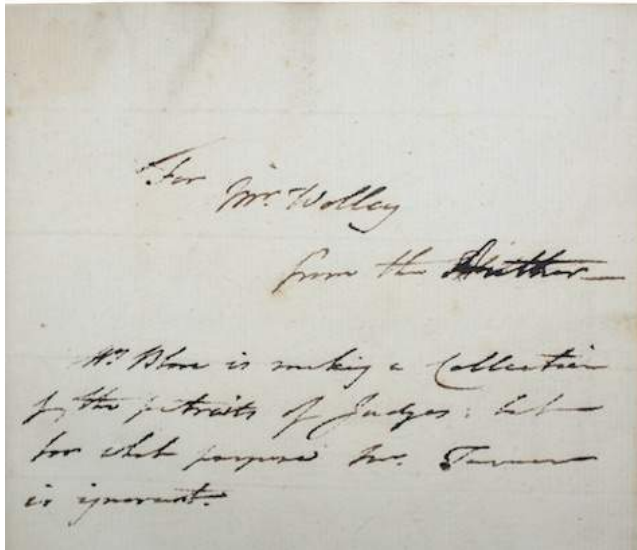 For
Mr. Wolley
from the Author
Mr. Blore is making a Collection
of the portraits of Judges: but
for what purpose Mr. Turner
is ignorant.